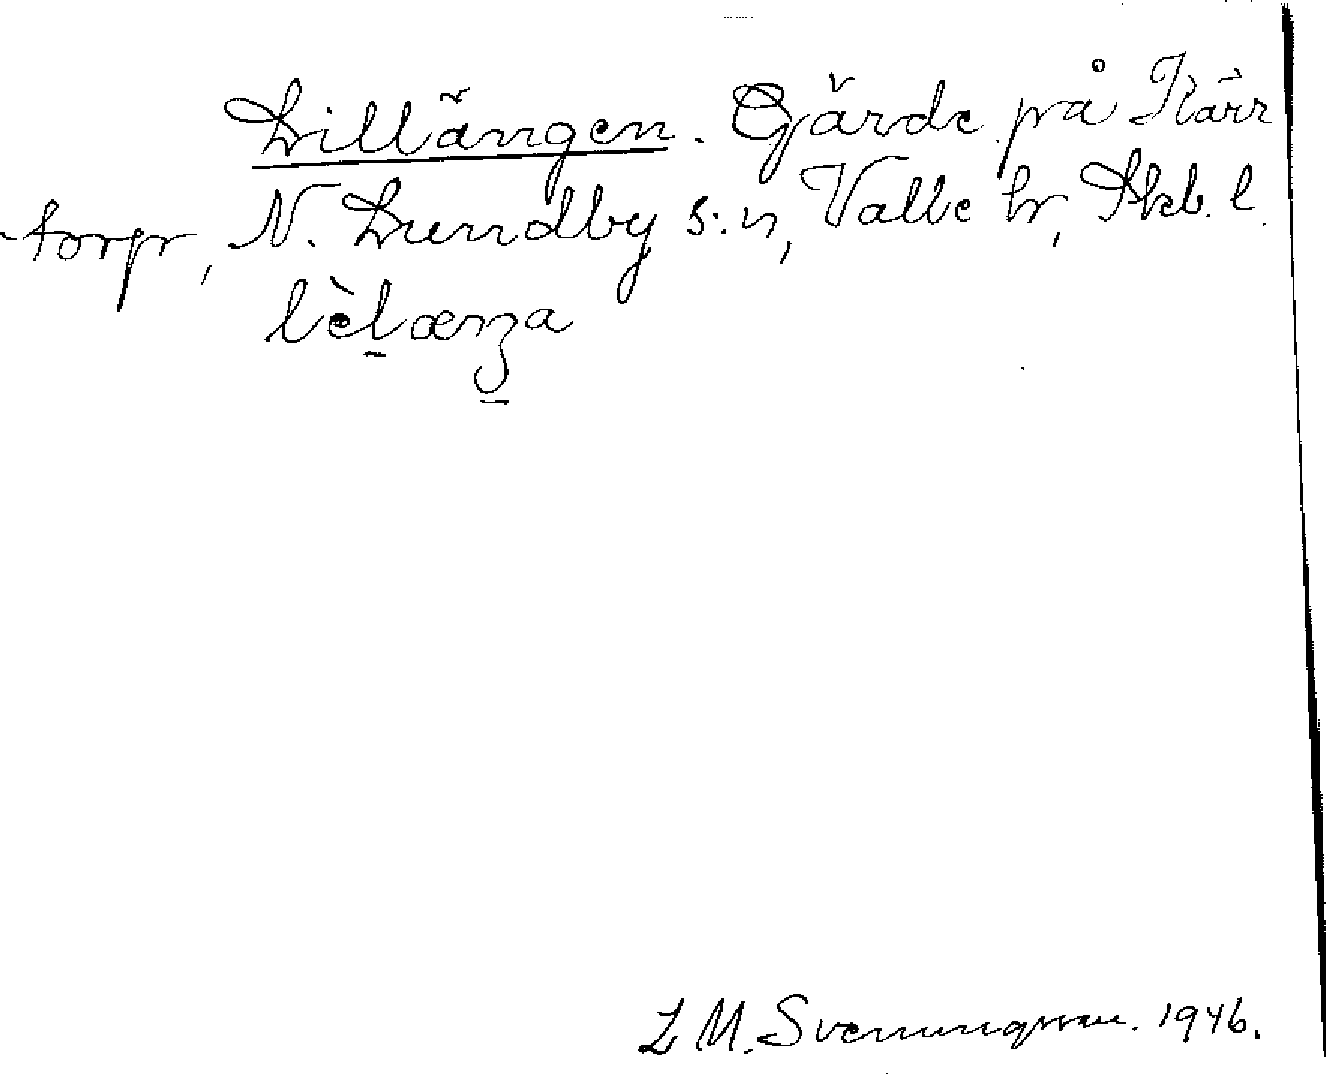 Lillängen. Gärde på Kärr
torp, N. Lundby s:n, Valle hr, Skb. l.
lèlænʒa
L M. Svenungsson. 1946.